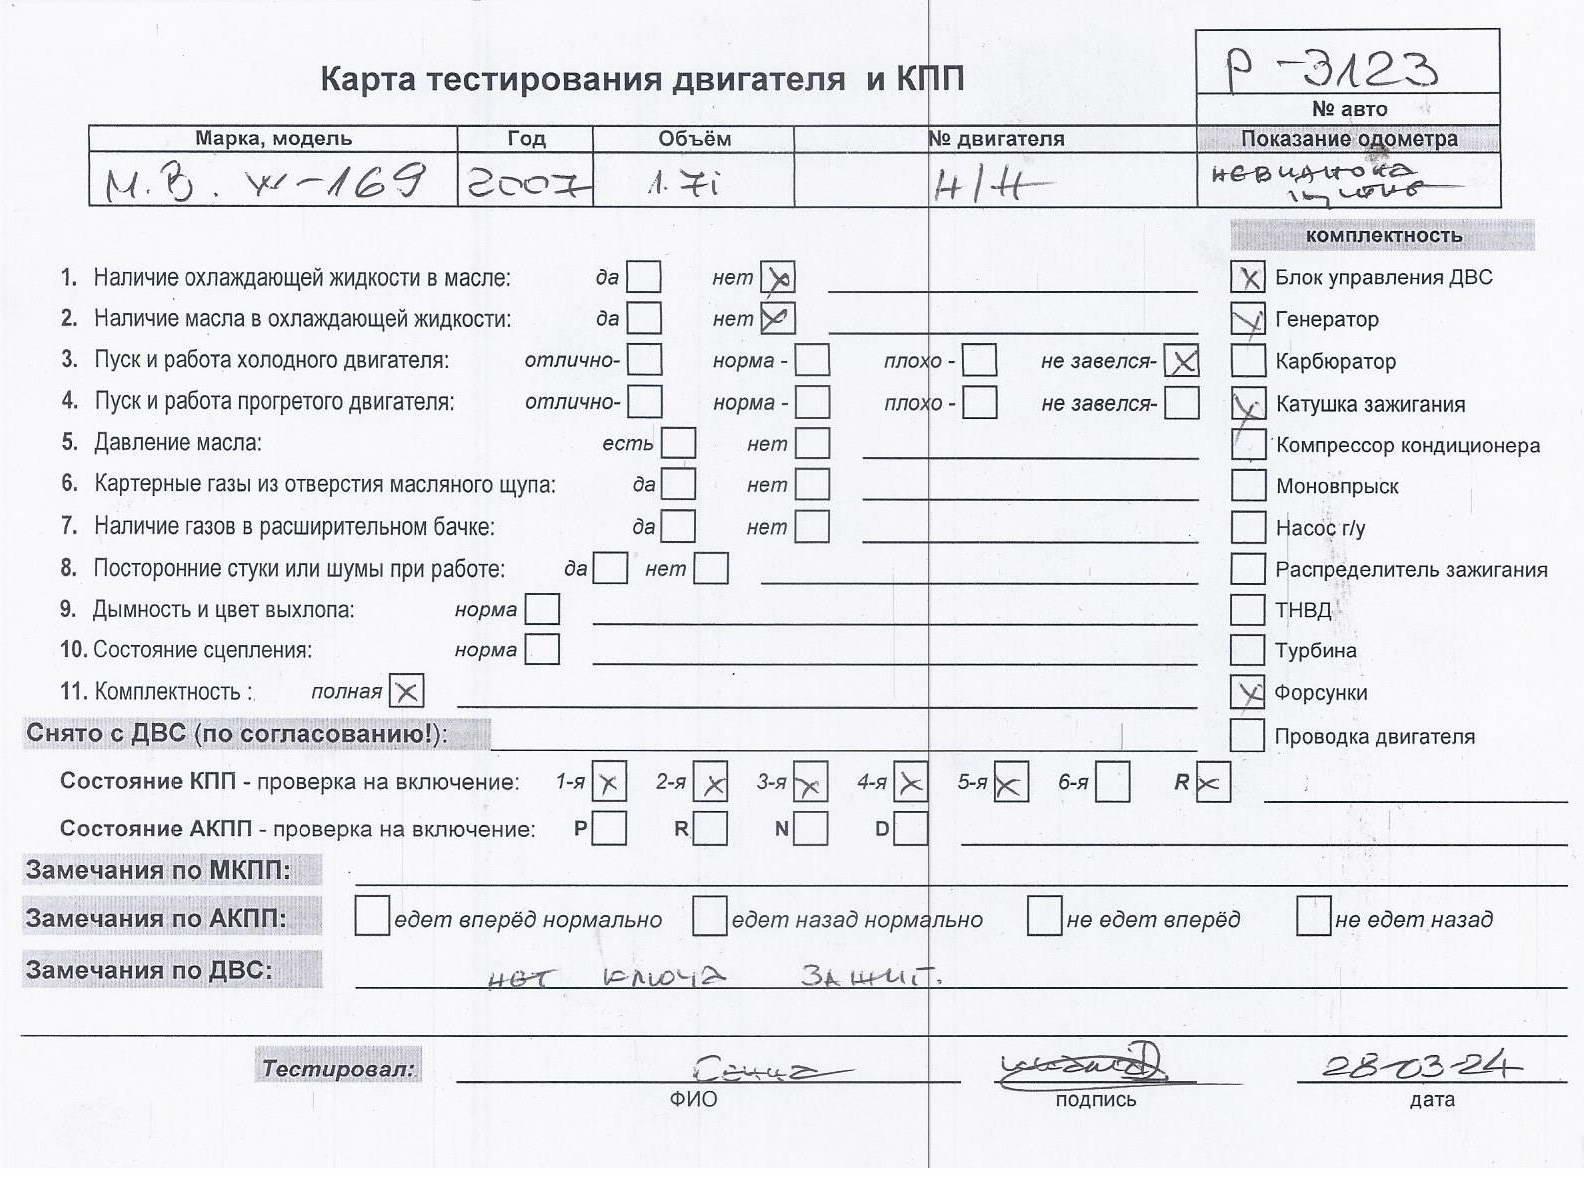 Р-3123
Карта тестирования двигателя и КПП
№ авто
Марка, модель Год Объём № двигателя Показание одометра
М.В. W-169 2007 1.7i Н/Н
комплектность
1. Наличие охлаждающей жидкости в масле: да нет Блок управления ДВС
2. Наличие масла в охлаждающей жидкости: да нет Генератор
3. Пуск и работа холодного двигателя: отлично- норма - плохо - не завелся- Карбюратор
4. Пуск и работа прогретого двигателя: отлично- норма - плохо - не завелся- Катушка зажигания
5. Давление масла: есть нет Компрессор кондиционера
6. Картерные газы из отверстия масляного щупа: да нет Моновпрыск
7. Наличие газов в расширительном бачке: да нет Насос г/у
8. Посторонние стуки или шумы при работе: да нет Распределитель зажигания
9. Дымность и цвет выхлопа: норма ТНВД
10. Состояние сцепления: норма Турбина
11. Комплектность : полная Форсунки
Снято с ДВС (по согласованию!): Проводка двигателя
Состояние КПП - проверка на включение: 1-я 2-я 3-я 4-я 5-я 6-я R
Состояние АКПП - проверка на включение: P R N D
Замечания по МКПП:
Замечания по АКПП: едет вперёд нормально едет назад нормально не едет вперёд не едет назад
Замечания по ДВС: нет ключа зажиг.
Тестировал: 28-03-24
ФИО подпись дата